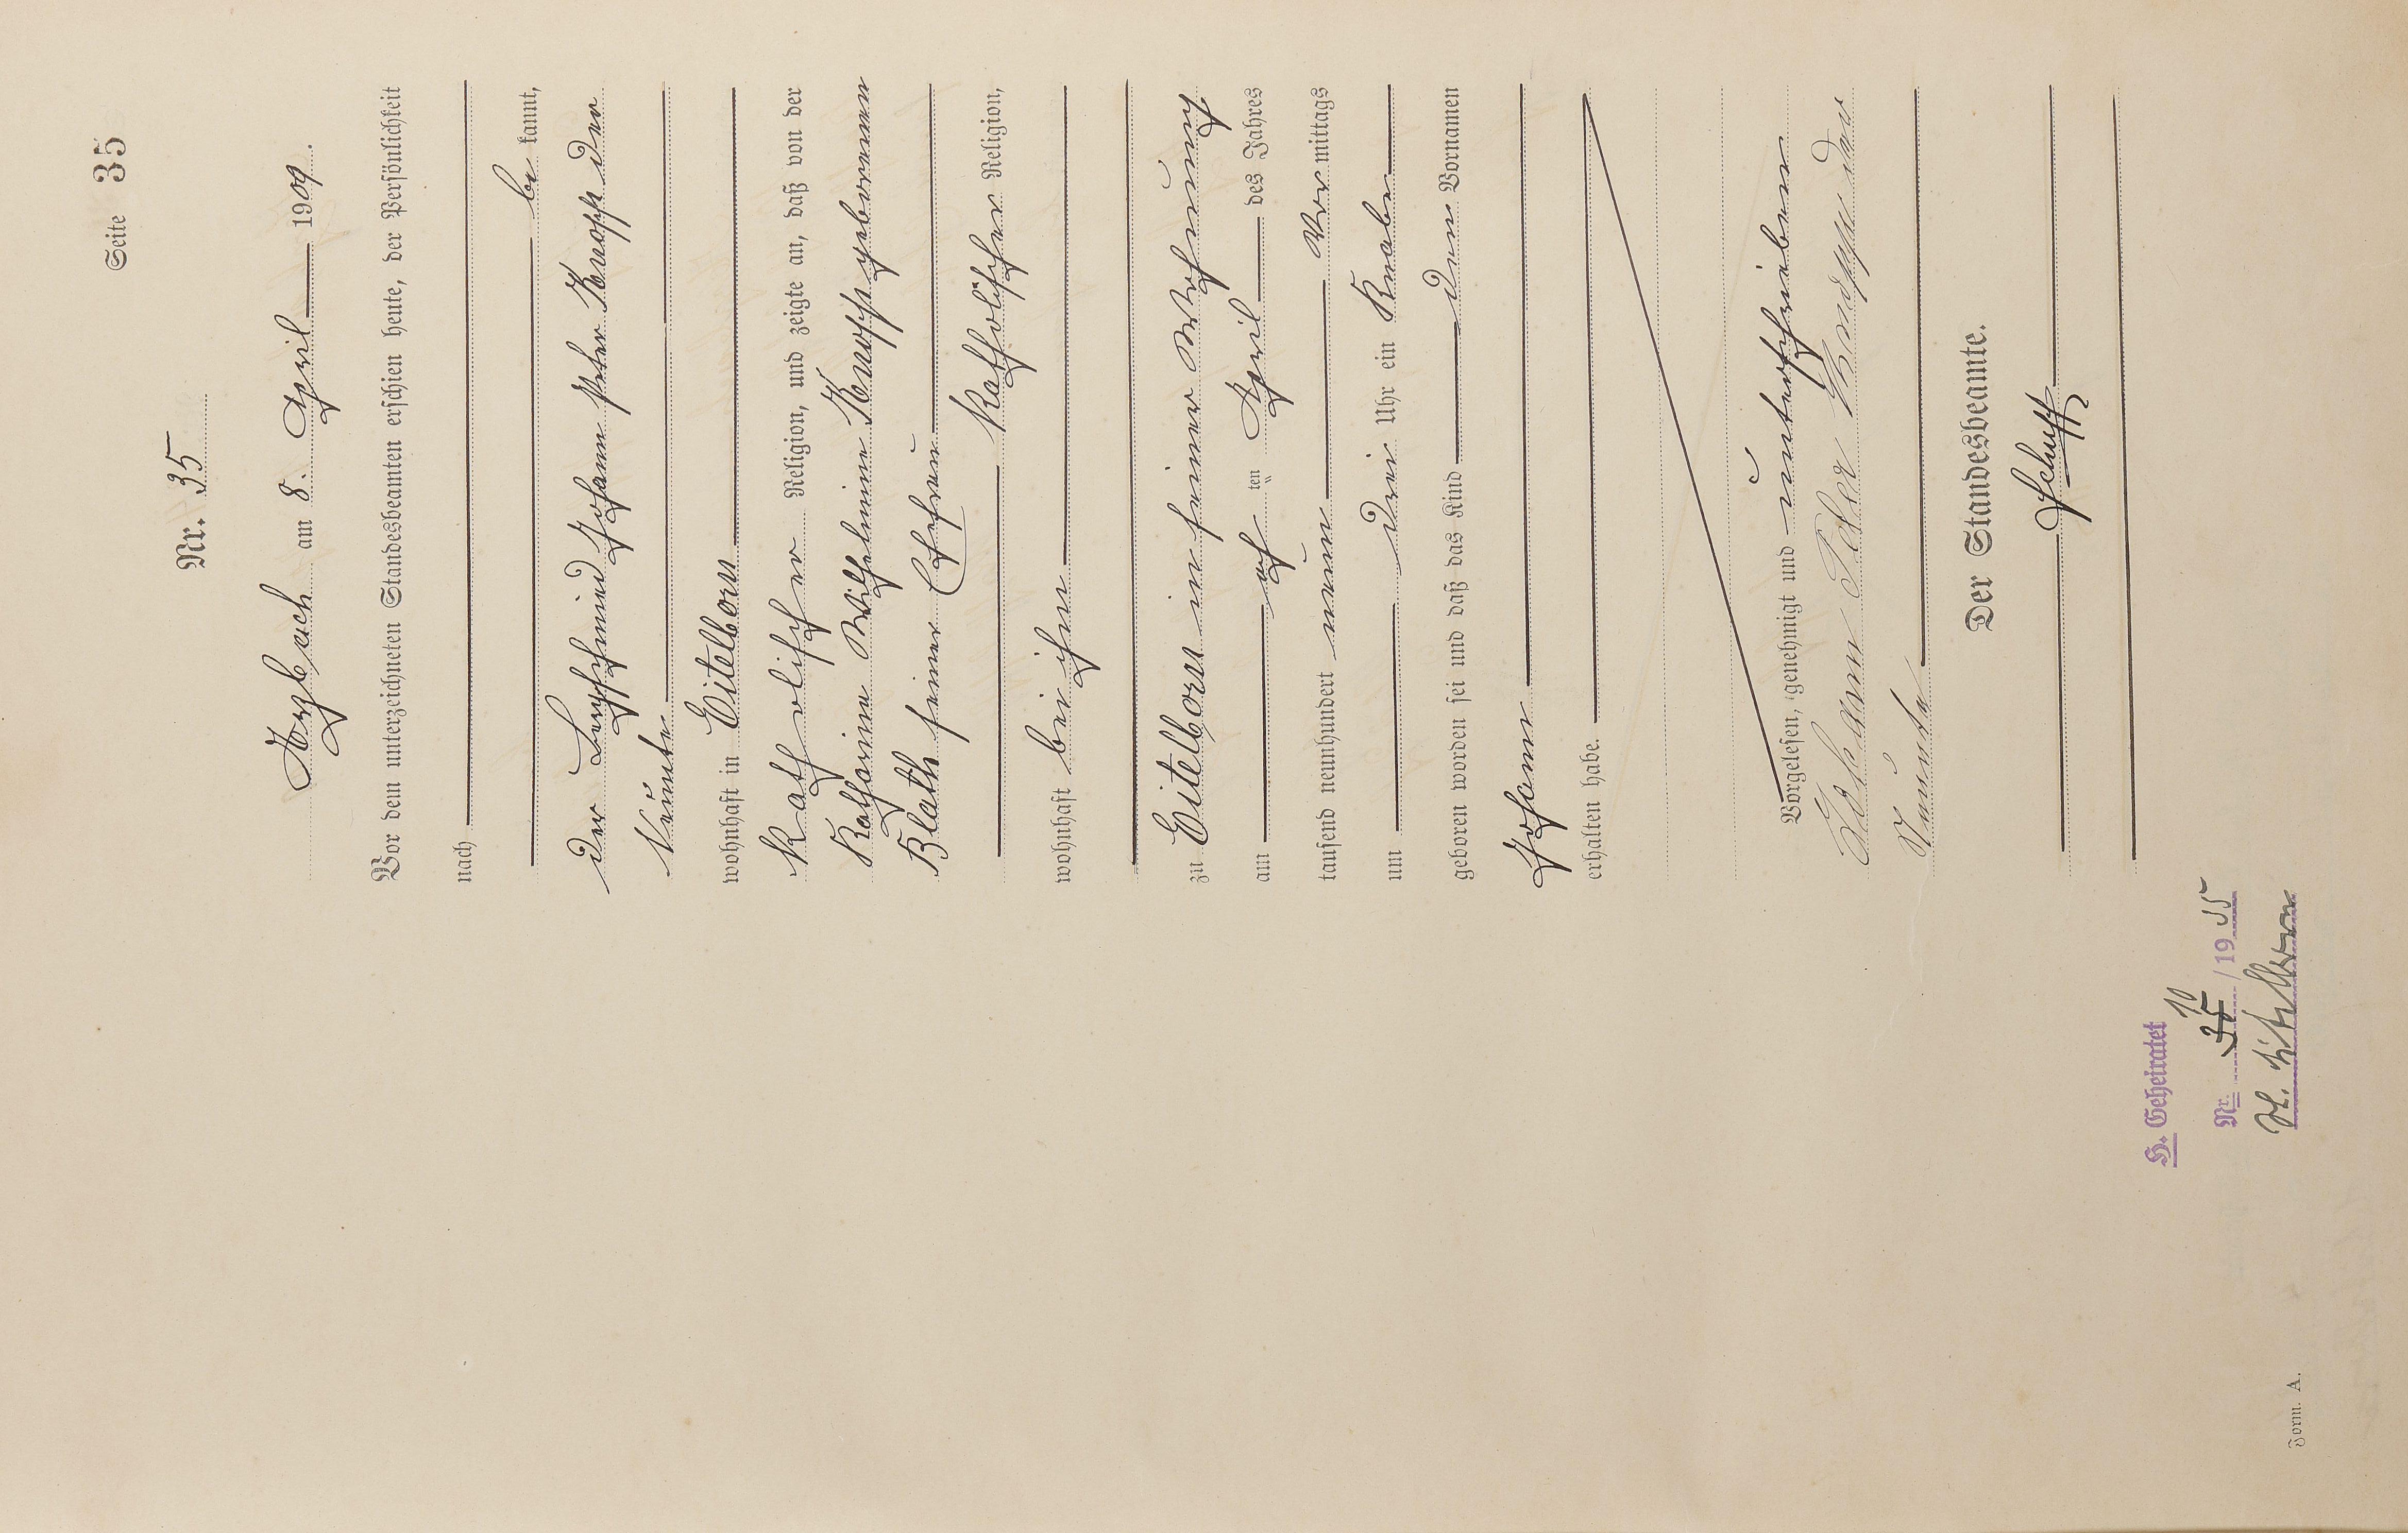 Seite 35
Nr. 35
Arzbach am 8. April 1909.
Vor dem unterzeichneten Standesbeamten erschien heute, der Persönlichkeit
nach
be kannt,
der Bergschmied Johann Peter Knopp der
Neunte
wohnhaft in Eitelborn
katholischer Religion, und zeigte an, daß von der
Katharina Wilhelmine Knopp geborenen
Blath seiner Ehefrau
katholischer Religion,
wohnhaft bei ihm
zu Eitelborn in seiner Wohnung
am ach ten April des Jahres
tausend neunhundert neun Vor mittags
um drei Uhr ein Knabe
geboren worden sei und daß das Kind den Vornamen
Johann
erhalten habe.
Vorgelesen, genehmigt und unterschrieben
Johann Peter Knopp der
Neunte
Der Standesbeamte.
Schupp
H. Geheiratet
Nr. 35 10 /1935
St. Eitelborn
Form. A.